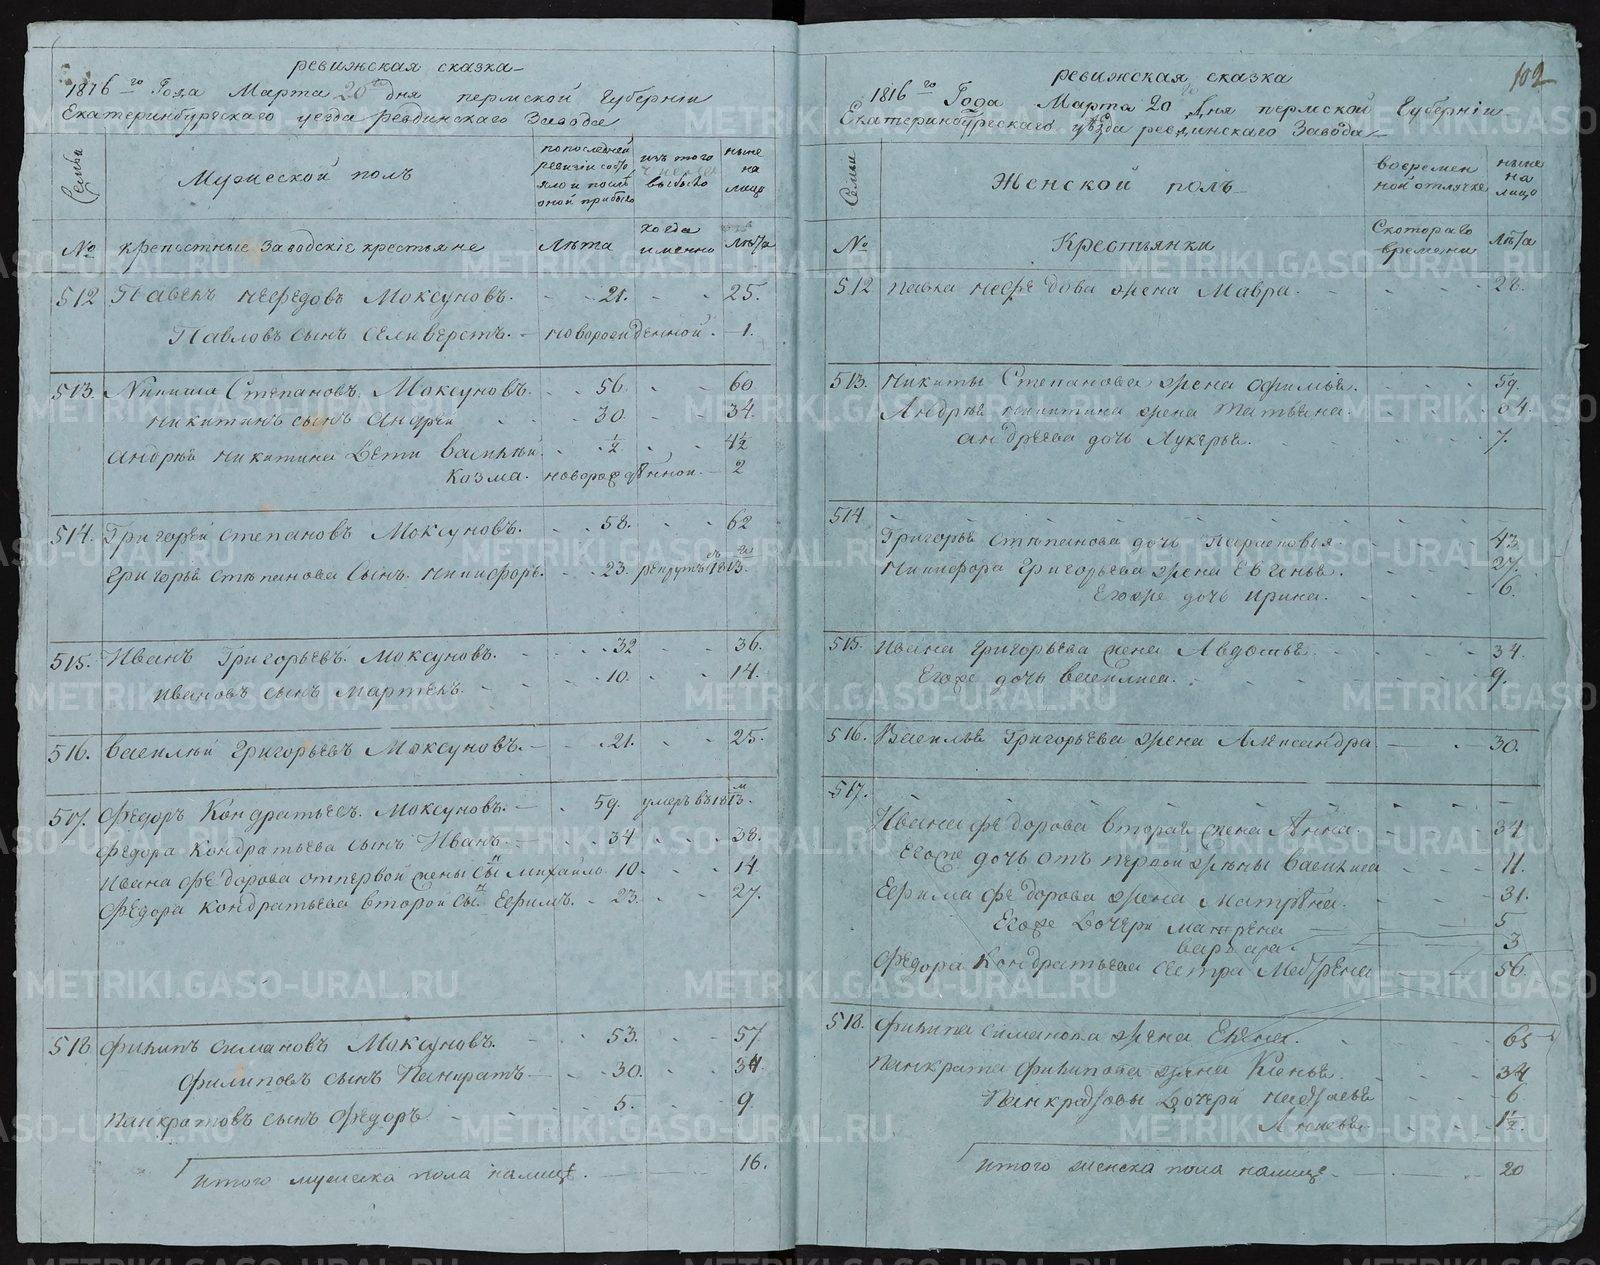 102
ревижская сказка
1816го Года Марта 20 дня пермской Губернiи
Екатеринбургскаго уезда ревдинскаго Завода
Семьи
Мужеской полъ
попоследней ревизiи состояло и после оной прибыло
изъ того числа выбыло
ныне на лицо
№
крепостные Заводскiе крестьяне
Лѣта
когда именно
Лѣта
512 Павелъ Мефедовъ Моксуновъ. 21. 25.
Павловъ сынъ Селиверстъ. новорожденной. 1.
513. Никита Степановъ Моксуновъ. 56. 60
Никитинъ сынъ Андрей 30. 34.
Андрѣя Никитина Дети Василѣй ½ 4½
Козма. новорожденной. 2
514. Григорѣй Степановъ Моксуновъ. 58. 62
Григорья Степанова Сынъ Никифоръ. 23. рекрутъ съ 1813го
515. Иванъ Григорьевъ Моксуновъ. 32 36.
Ивановъ сынъ Мартенъ. 10. 14.
516. Василѣй Григорьевъ Моксуновъ. 21. 25.
517. Федоръ Кондратьевъ Моксуновъ. 59. умеръ въ 1813м
Федора Кондратьева сынъ Иванъ. 34 38.
Ивана Федорова отпервой жены Сынъ Михайло 10. 14.
Федора Кондратьева второй Сынъ Ефимъ. 23. 27.
518 Филипъ Симановъ Моксуновъ. 53. 57
Филиповъ сынъ Панкратъ 30. 34.
Панкратовъ сынъ Федоръ 5. 9.
Итого мужеска пола налице. 16.
ревижская сказка
1816го Года Марта 20 Дня пермской Губернiи
Екатеринбургскаго уѣзда ревдинскаго Завода
Семьи
Женской полъ
вовременной отлучке
ныне на лицо
№
Крестьянки
Скотораго времени
Лѣта
512 Павла Мефедова жена Мавра. 28.
513. Никиты Степанова жена Офимья. 59.
Андрѣя Никитина жена Татьяна. 34.
Андрѣева дочь Лукерья. 7.
514
Григорья Степанова дочь Парасковья 43
Никифора Григорьева жена Евгенья. 27.
Егоже дочь Ирина. 6.
515. Ивана Григорьева жена Авдотья 34.
Егоже дочь Василиса. 9.
516. Василья Григорьева жена Александра 30.
517.
Ивана Федорова вторая жена Анна 34
Егоже дочь отъ первой жены Василиса 11.
Ефима Федорова жена Матрена. 31.
Егоже Дочери Матрена 5
Варвара 3
Федора Кондратьева сестра Матрена 56.
518. Филипа Симанова жена Елена. 65
Панкрата Филипова жена Ксенья 34
Панкратовы Дочери Настасья 6
1½
Итого женска пола налице 20